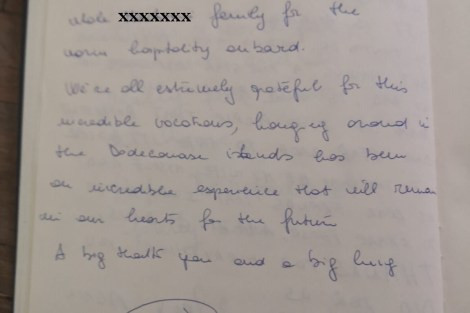 whole xxxxxxx family for the
warm hospitality onboard.
We're all extremely grateful for this
incredible vacations, hanging around in
the Dodecanase islands has been
an incredible experience that will remain
in our hearts for the future
A big thank you and a big hug